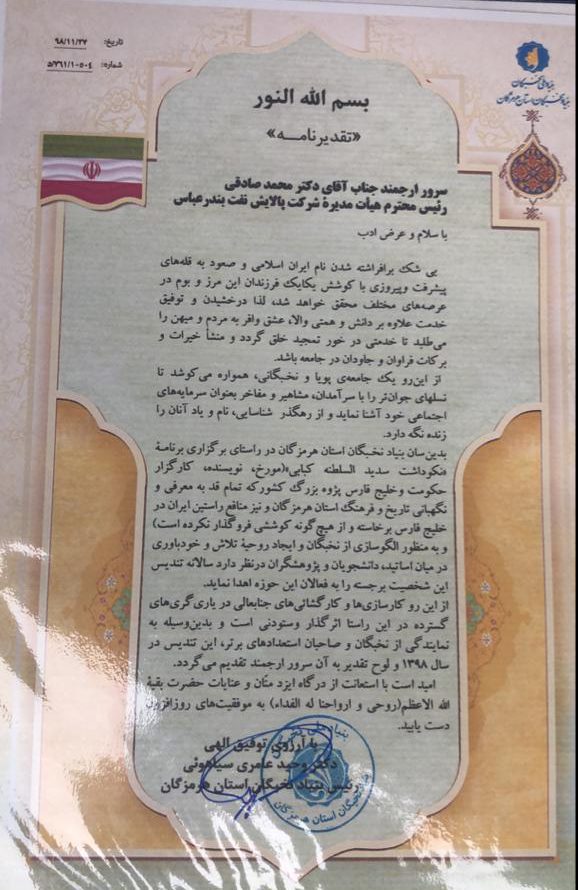 تاریخ: ۹۸/۱۱/۲۲
شماره: ۵/۳۶۱/۱۰۵۰۴
بنیاد ملی نخبگان
بنیاد نخبگان استان هرمزگان
بسم الله النور
«تقدیرنامـه»
سرور ارجمند جناب آقای دکتر محمد صادقی
رئیس محترم هیأت مدیرهٔ شرکت پالایش نفت بندرعباس
با سلام و عرض ادب
بی شک برافراشته شدن نام ایران اسلامی و صعود به قله‌های
پیشرفت وپیروزی با کوشش یکایک فرزندان این مرز و بوم در
عرصه‌های مختلف محقق خواهد شد، لذا درخشیدن و توفیق
خدمت علاوه بر دانش و همتی والا، عشق وافر به مردم و میهن را
می‌طلبد تا خدمتی در خور تمجید خلق گردد و منشأ خیرات و
برکات فراوان و جاودان در جامعه باشد.
از این‌رو یک جامعه‌ی پویا و نخبگانی، همواره می‌کوشد تا
نسلهای جوان‌تر را با سرآمدان، مشاهیر و مفاخر بعنوان سرمایه‌های
اجتماعی خود آشنا نماید و از رهگذر شناسایی، نام و یاد آنان را
زنده نگه دارد.
بدین‌سان بنیاد نخبگان استان هرمزگان در راستای برگزاری برنامهٔ
«نکوداشت سدید السلطنه کبابی»(مورخ، نویسنده، کارگزار
حکومت وخلیج فارس پژوه بزرگ کشورکه تمام قد به معرفی و
نگهبانی تاریخ و فرهنگ استان هرمزگان و نیز منافع راستین ایران در
خلیج فارس برخاسته و از هیچ‌گونه کوششی فروگذار نکرده است)
و به منظور الگوسازی از نخبگان و ایجاد روحیهٔ تلاش و خودباوری
در میان اساتید، دانشجویان و پژوهشگران درنظر دارد سالانه تندیس
این شخصیت برجسته را به فعالان این حوزه اهدا نماید.
از این رو کارسازی‌ها و کارگشائی‌های جنابعالی در یاری‌گری‌های
گسترده در این راستا اثرگذار وستودنی است و بدین‌وسیله به
نمایندگی از نخبگان و صاحبان استعدادهای برتر، این تندیس در
سال ۱۳۹۸ و لوح تقدیر به آن سرور ارجمند تقدیم می‌گردد.
امید است با استعانت از درگاه ایزد منّان و عنایات حضرت بقیة
الله الاعظم(روحی و ارواحنا له الفداء) به موفقیت‌های روزافزون
دست یابید.
با آرزوی توفیق الهی
دکتر وحید عامری سیاهوئی
رئیس بنیاد نخبگان استان هرمزگان
بنیاد ملی نخبگان
بنیاد نخبگان استان هرمزگان